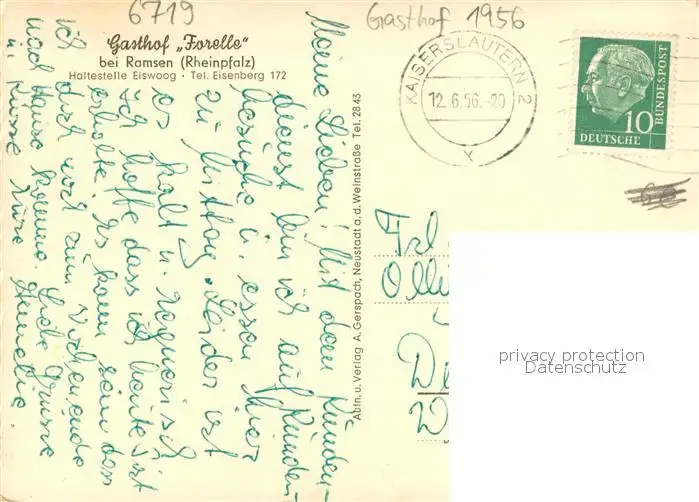 6719
Gasthof 1956
Gasthof „Forelle"
bei Ramsen (Rheinpfalz)
Haltestelle Eiswoog · Tel. Eisenberg 172
KAISERSLAUTERN 2
12.6.56.-20
Y
10
DEUTSCHE
BUNDESPOST
Meine Lieben! Mit dem Kunden-
dienst bin ich auf Kunden-
besuche u. essen hier
zu Mittag. Leider ist
es kalt u. regnerisch
Ich hoffe dass ich heute
erhalte. Es kann sein dass
ich doch noch zum Wochenende
nach Hause komme. Liebe Grüsse
u. Küsse
Abtn. u. Verlag A. Gerspach, Neustadt a. d. Weinstraße Tel. 2843
privacy protection
Datenschutz